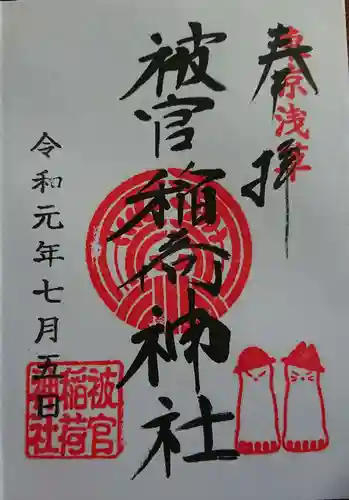 東京浅草
奉拝
被官稲荷神社
令和元年七月五日
被官
稲荷
神社